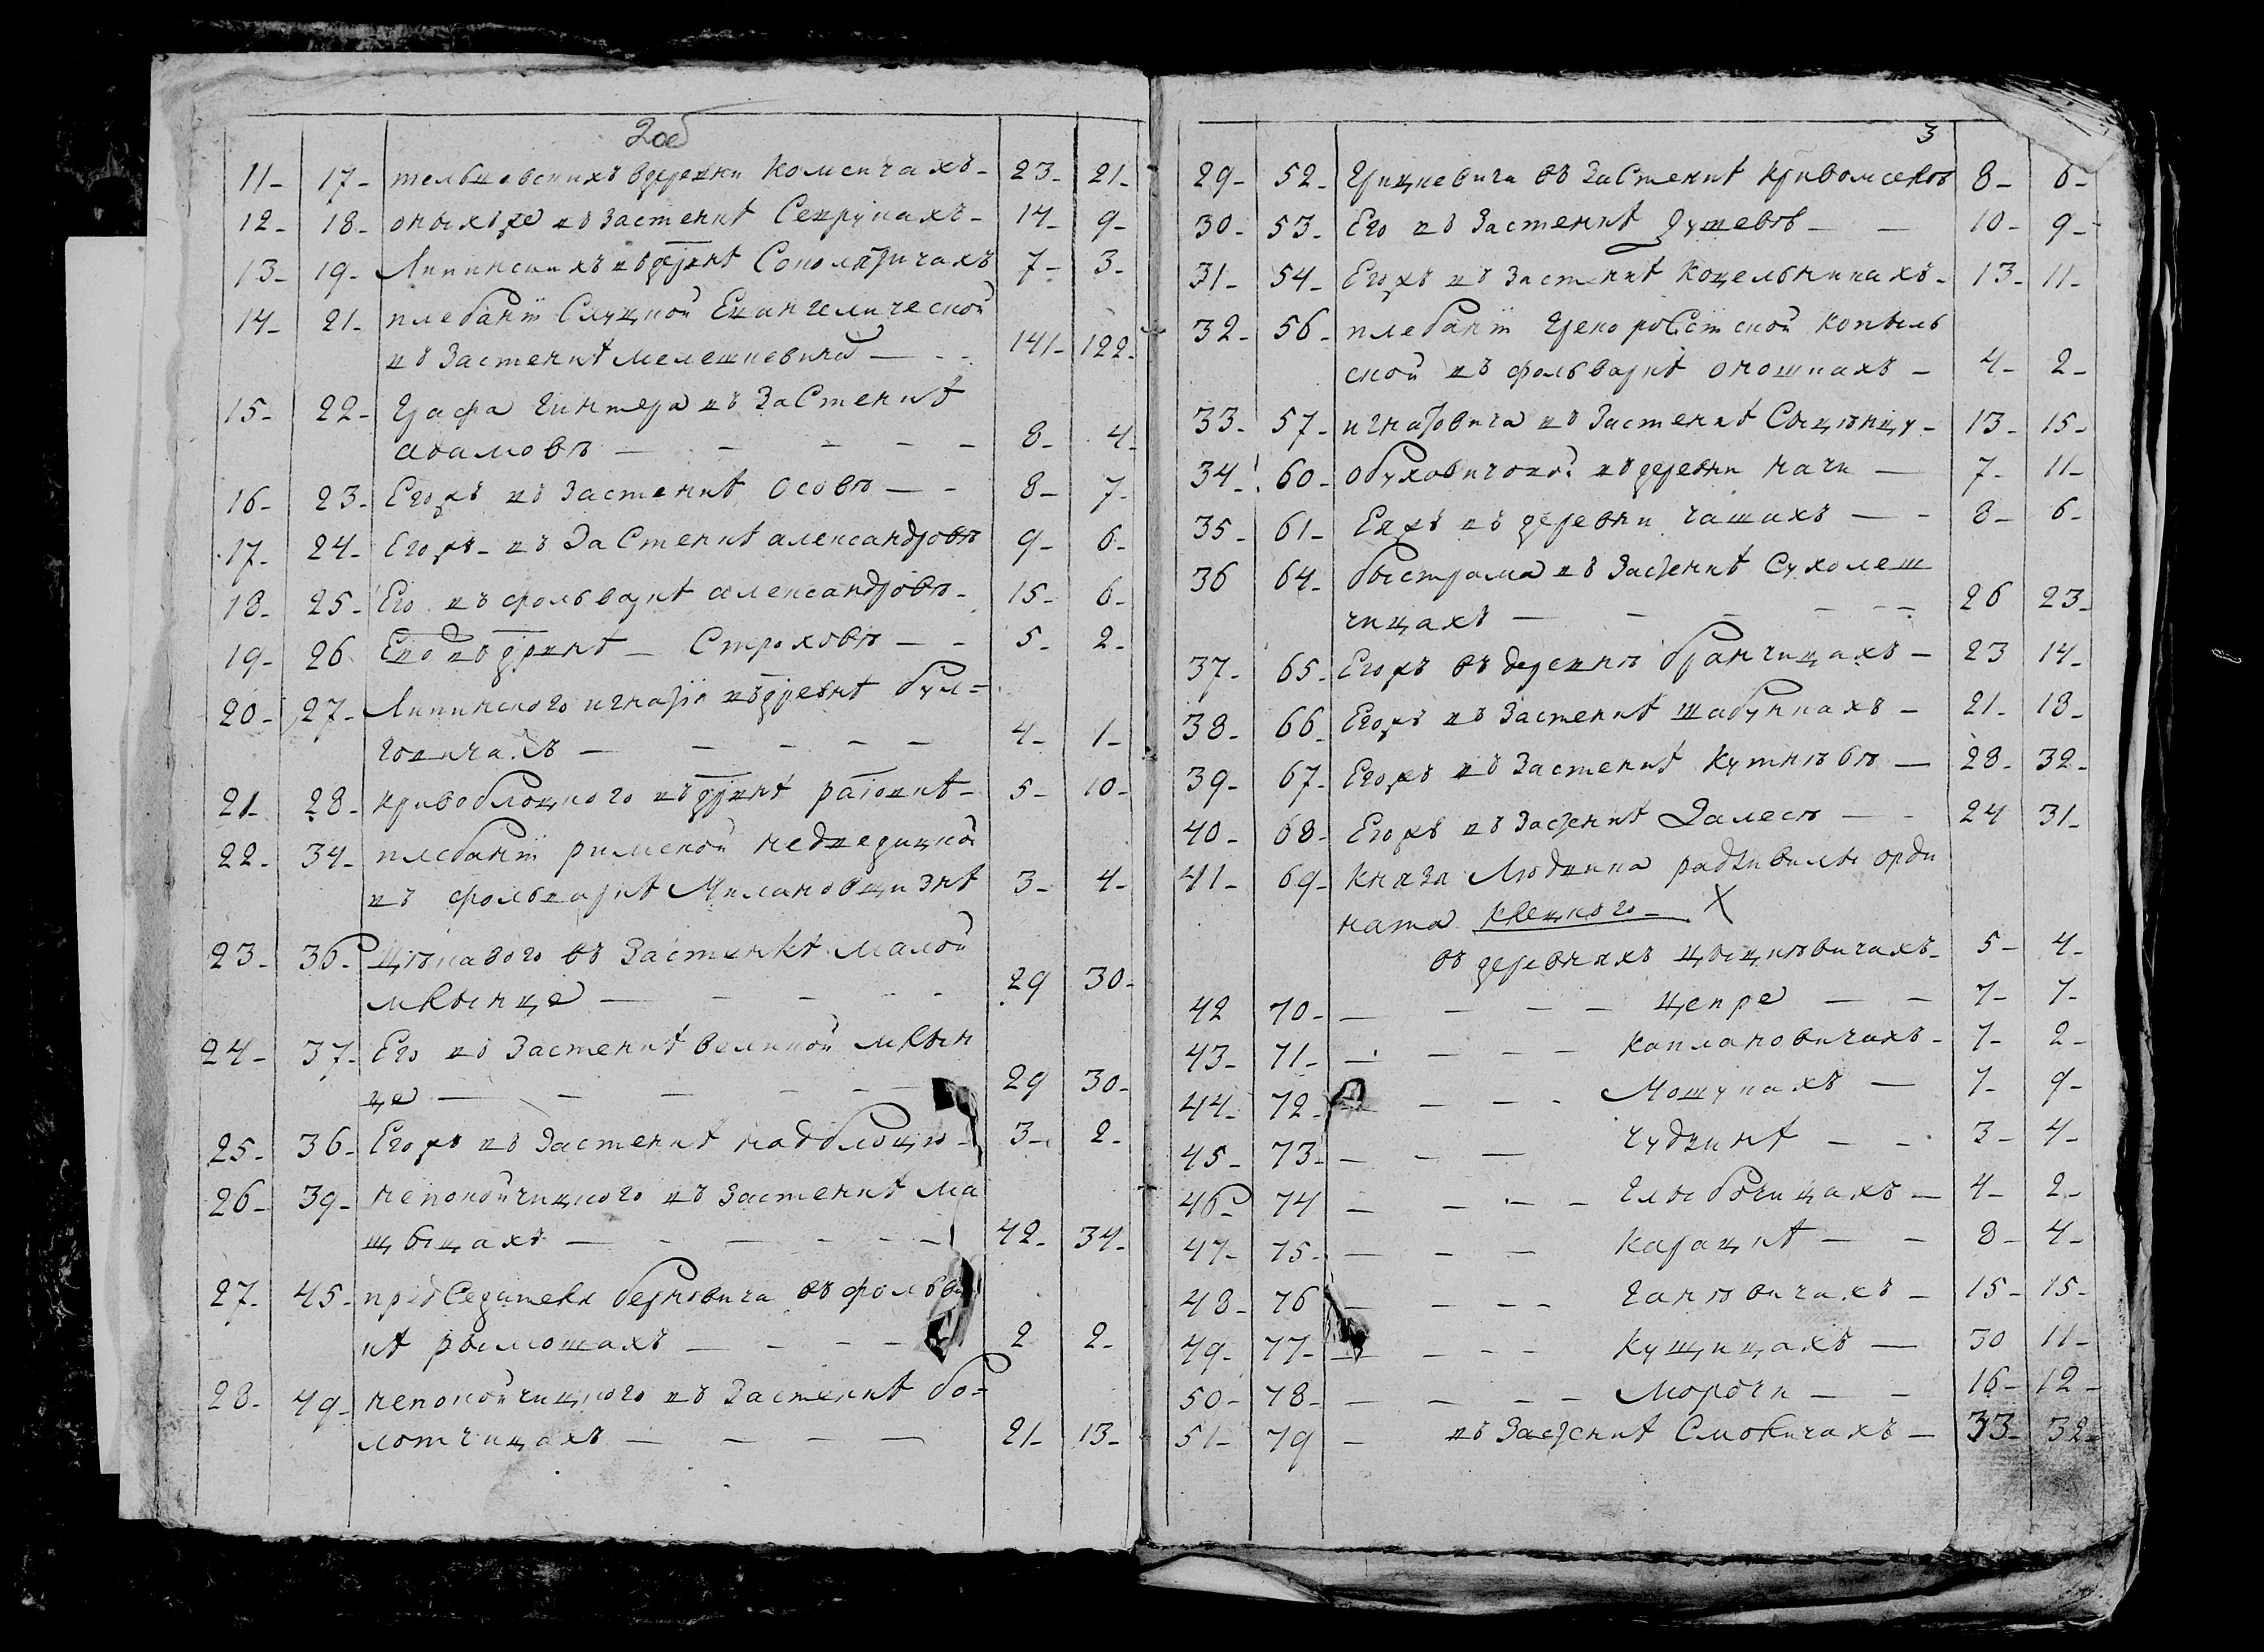 2об
11- 17- тельшевскихъ в деревни Комсичахъ- 23- 21-
12- 18- оныхъ же въ застенкѣ Секрукахъ- 14- 9-
13- 19- Липинскихъ в дерѣвнѣ 7- 3-
14- 21- плебаніи Слуцкой Евангелической
въ застенкѣ Мелешкевича - 141- 122-
15- 22- Графа Гинтера въ застенкѣ
адамовѣ - - - - - 8- 4-
16- 23- Егожъ въ застенкѣ осовѣ - - 8- 7-
17- 24- Егожъ- въ застенкѣ александровѣ 9- 6-
18- 25- Его въ фольваркѣ александровѣ- 15- 6-
19- 26 Его въ - Строховѣ - - 5- 2-
20- 27- Липинского игнатія въ дрѣвнѣ бул=
4- 1-
21- 28- кривоблоцкого раіовкѣ- 5- 10-
22- 34- плебаніи римской медведицкой
въ фольваркѣ Милановщизнѣ 3- 4-
23- 36- въ застенкѣ малой
мкынце - - - - 29 30-
24- 37- Его въ застенкѣ великой мкын
це - - - - - 29 30-
25- 36- Егожъ въ застенкѣ надблоцю - 3- 2-
26- 39- непокойчицкого въ застенкѣ ма
щбицахъ - - - - - 42- 34-
27- 45- председателя берновича въ фольва
кѣ рымошахъ - - - - 2 2-
28- 49- непокойчицкого въ застенкѣ бо=
лотчицахъ - - - - 21- 13-
3
29- 52- Грицкевича въ застенкѣ кривомсековѣ 8- 6-
30- 53- Его въ застенкѣ душевѣ - - 10- 9-
31- 54- Егожъ въ застенкѣ коцельникахъ- 13- 11-
32- 56- плебаніи Грекороссійской копыль
ской въ фольваркѣ оношкахъ - 4- 2-
33- 57- игнатовича въ застенкѣ 13- 15-
34- 60- обуховичовой въ деревни начи - 7- 11-
35- 61- Еяжъ въ деревни чашахъ - - 8- 6-
36 64- быстрама въ застенкѣ Сухолеш
чицахъ - - - - - 26 23-
37- 65- Егожъ въ деревнѣ бранчицахъ - 23 14-
38- 66- Егожъ въ застенкѣ шабункахъ - 21- 13-
39- 67- Егожъ въ застенкѣ кутнѣвѣ - 28- 32-
40- 68- Егожъ въ застенкѣ Залесѣ - - 24 31-
41- 69- князя Людвика радзивилы орди
ната клецкого - X
въ деревняхъ цыцковичахъ- 5- 4-
42 70- - - - - цепре - - 7- 7-
43- 71- - - - - каплановичахъ- 7- 2-
44- 72- - - - - Мошукахъ - 7- 9-
45- 73- - - - чудзинѣ - - 3- 4-
46- 74 - - - - глыбочицахъ - 4- 2-
47- 75- - - - карацкѣ - - 8- 4-
48- 76 - - - - ганѣвичахъ - 15- 15-
49- 77- - - - - кущицахъ - 30 11-
50- 78- - - - - Морочи - - 16- 12-
51- 79 - въ застенкѣ Смоличахъ - 33- 32-